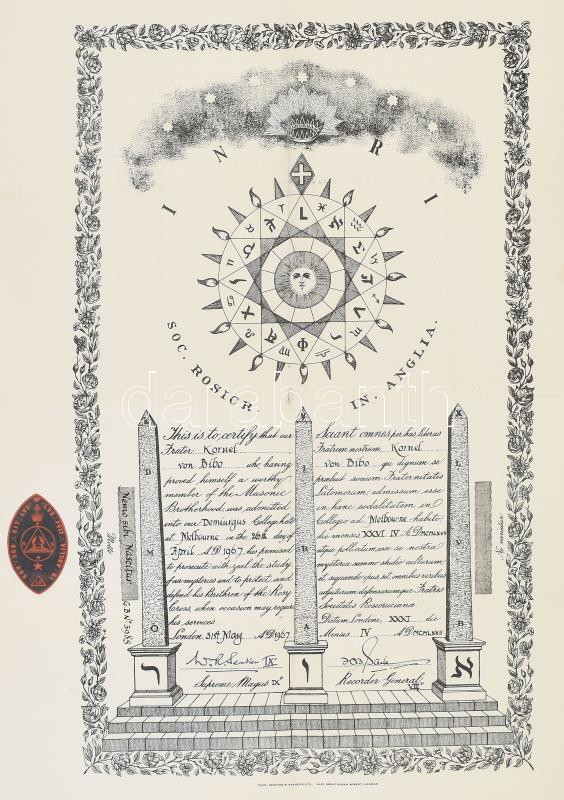 I N R I
SOC. ROSICR. IN. ANGLIA.
darabanth
This is to certify that our
Frater Kornel
von Bibo who, having
proved himself a worthy
member of the Masonic
Brotherhood, was admitted
into our Demiurgus College held
at Melbourne in the 26th day of
April A D 1967, has promised
to prosecute with zeal the study
of our mysteries and to protect, and
defend his Brethren of the Rosy
Cross, when occasion may require
his services.
London 31st May A D 1967
Supreme Magus IX°
Sciant omnes per has literas
Fratrem nostrum Kornel
von Bibo qui dignum se
praebuit socium Fraternitatis
Latomorum admissum esse
in hanc sodalitatem in
Collegio ad Melbourne habito
die menses XXVI IV A D MCMLXVII
atque pollicitum esse se nostra
mysteria summo studio culturum
et, siquando opus sit, omnibus viribus
adjutorum defensurumque Fratres
Societatis Rosicrucianae
Datum Londini XXXI die
Mensis IV A D MCMLXVII
Recorder General
VIII°
Nemo sibi Nascitur
Motto
ר
י
א